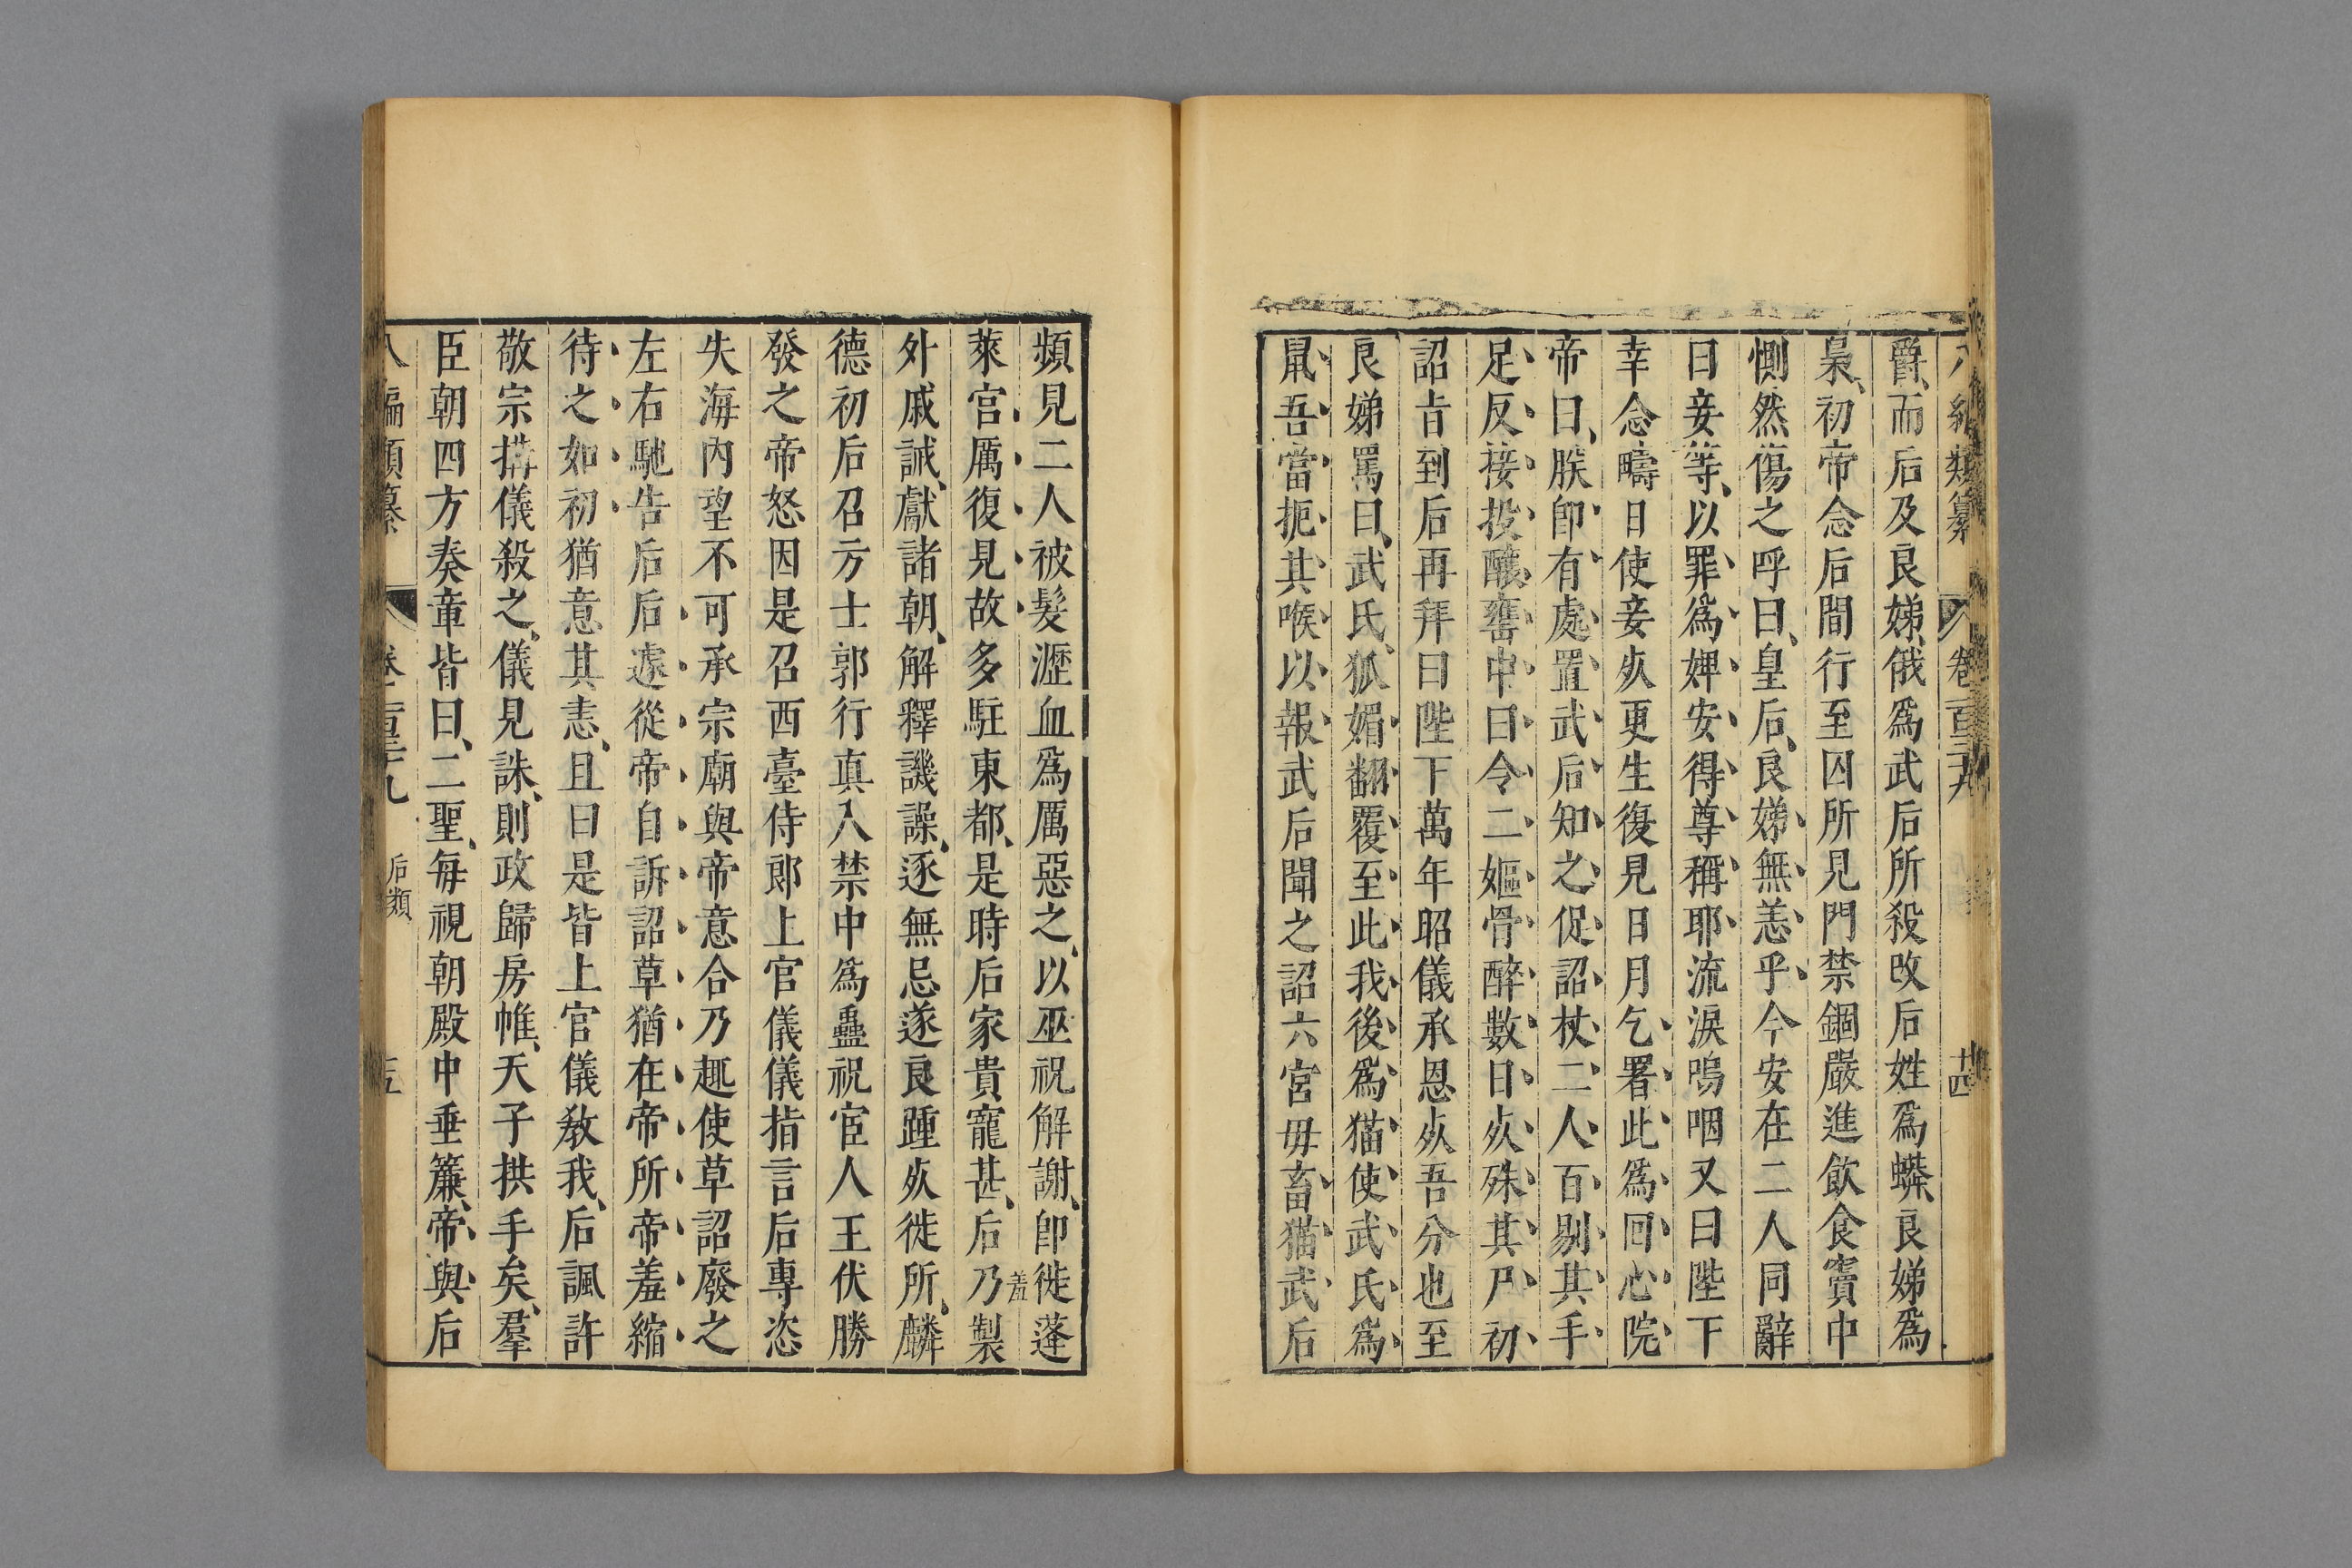 八編類纂 卷一百三十九 十四
爵、而后及良娣、俄爲武后所殺改后姓爲蟒、良娣爲
梟、初帝念后間行至囚所見門禁錮嚴進飲食竇中
惻然傷之呼曰、皇后、良娣無恙乎今安在二人同辭
曰妾等、以罪爲婢安得尊稱耶流淚嗚咽又曰陛下
幸念疇日使妾㱙更生復見日月乞署此爲回心院
帝曰、朕卽有處置武后知之促詔杖二人百剔其手
足反接投釀甕中曰令二嫗骨醉數日㱙殊其尸初
詔㫖到后再拜曰陛下萬年昭儀承恩㱙吾分也至
良娣罵曰、武氏、狐媚翻覆至此我後爲猫使武氏爲
鼠吾當扼其喉以報武后聞之詔六宮毋畜猫武后
頻見二人被髮瀝血爲厲惡之、以巫祝解謝、卽徙蓬
萊宫厲復見故多駐東都、是時后家貴寵甚、后乃製
羞
外戚誡、獻諸朝、解釋譏譟、逐無忌遂良踵㱙徙所、麟
德初后召方士郭行真入禁中爲蠱祝宦人王伏勝
發之帝怒因是召西臺侍郎上官儀儀指言后專恣
失海內望不可承宗廟與帝意合乃趣使草詔廢之
左右馳告后后遽從帝自訴詔草猶在帝所帝羞縮
待之如初猶意其恚、且曰是皆上官儀敎我、后諷許
敬宗搆儀殺之、儀見誅、則政歸房帷、天子拱手矣、羣
臣朝四方奏章皆曰、二聖、每視朝殿中垂簾、帝、與后
八編類纂 卷一百三十九 后類 十五